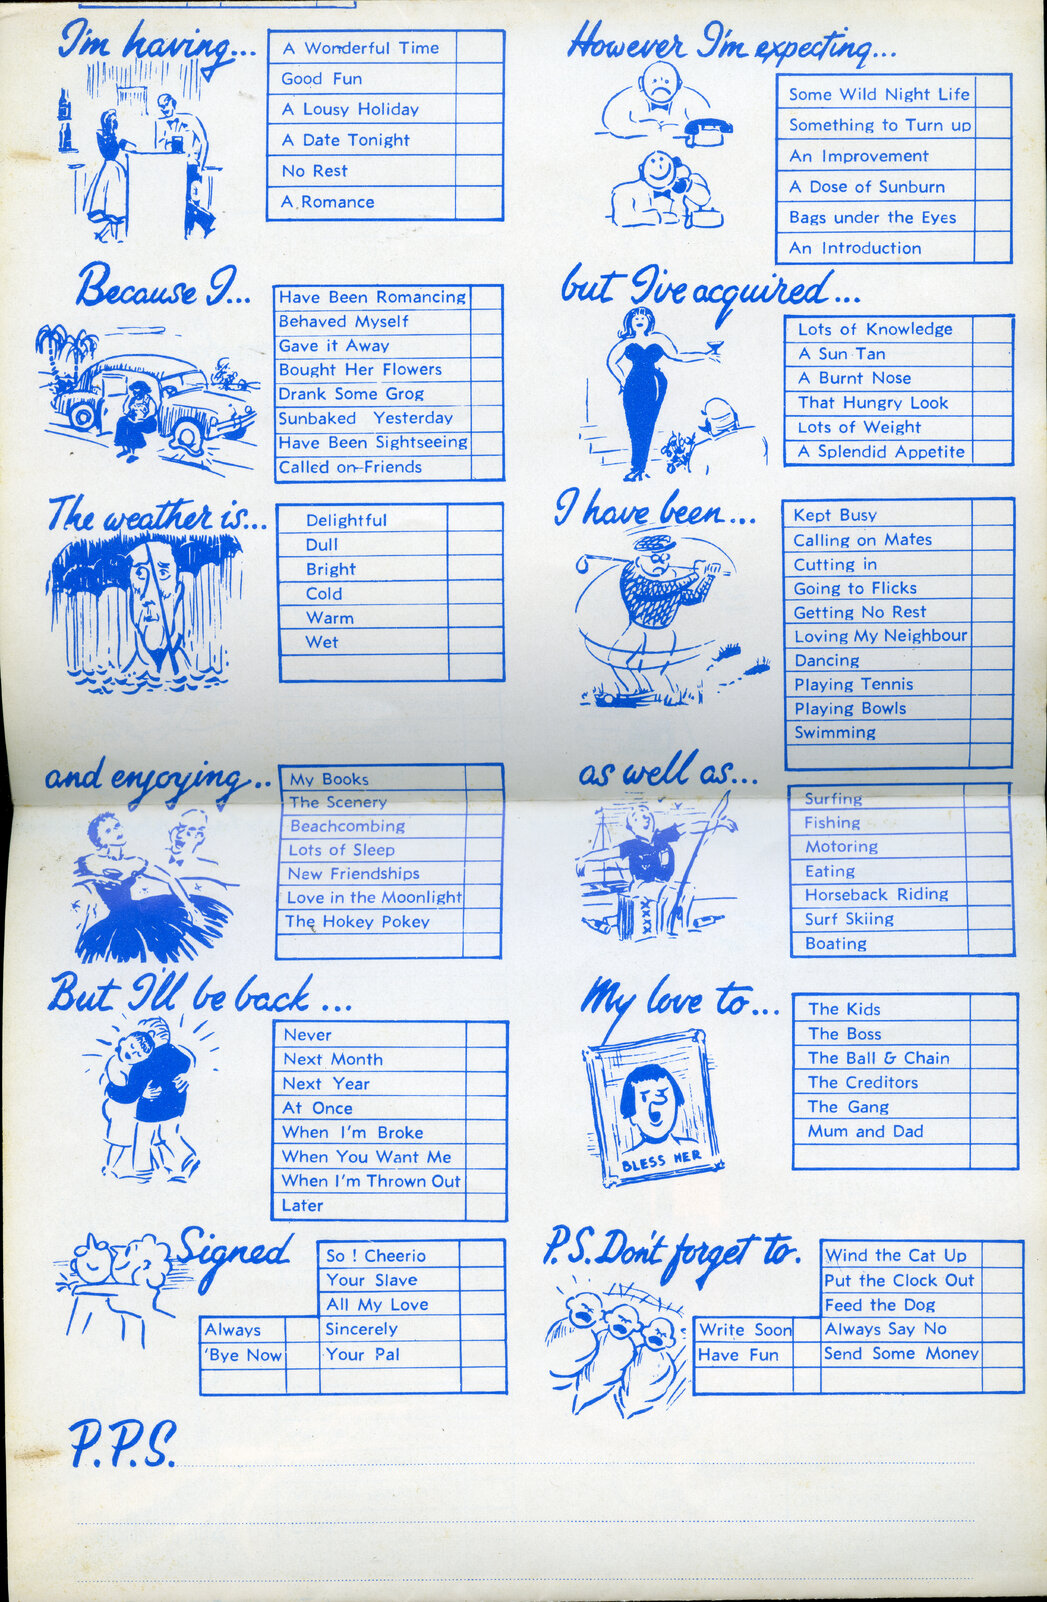 I'm having...
A Wonderful Time
Good Fun
A Lousy Holiday
A Date Tonight
No Rest
A Romance
However I'm expecting...
Some Wild Night Life
Something to Turn up
An Improvement
A Dose of Sunburn
Bags under the Eyes
An Introduction
Because I...
Have Been Romancing
Behaved Myself
Gave it Away
Bought Her Flowers
Drank Some Grog
Sunbaked Yesterday
Have Been Sightseeing
Called on Friends
but I've acquired...
Lots of Knowledge
A Sun Tan
A Burnt Nose
That Hungry Look
Lots of Weight
A Splendid Appetite
The weather is...
Delightful
Dull
Bright
Cold
Warm
Wet
I have been...
Kept Busy
Calling on Mates
Cutting in
Going to Flicks
Getting No Rest
Loving My Neighbour
Dancing
Playing Tennis
Playing Bowls
Swimming
and enjoying..
My Books
The Scenery
Beachcombing
Lots of Sleep
New Friendships
Love in the Moonlight
The Hokey Pokey
as well as...
Surfing
Fishing
Motoring
Eating
Horseback Riding
Surf Skiing
Boating
XXXX
But I'll be back...
Never
Next Month
Next Year
At Once
When I'm Broke
When You Want Me
When I'm Thrown Out
Later
My love to...
The Kids
The Boss
The Ball & Chain
The Creditors
The Gang
Mum and Dad
BLESS HER
Signed
So! Cheerio
Your Slave
All My Love
Always
Sincerely
'Bye Now
Your Pal
P.S. Don't forget to.
Wind the Cat Up
Put the Clock Out
Feed the Dog
Write Soon
Always Say No
Have Fun
Send Some Money
P.P.S.